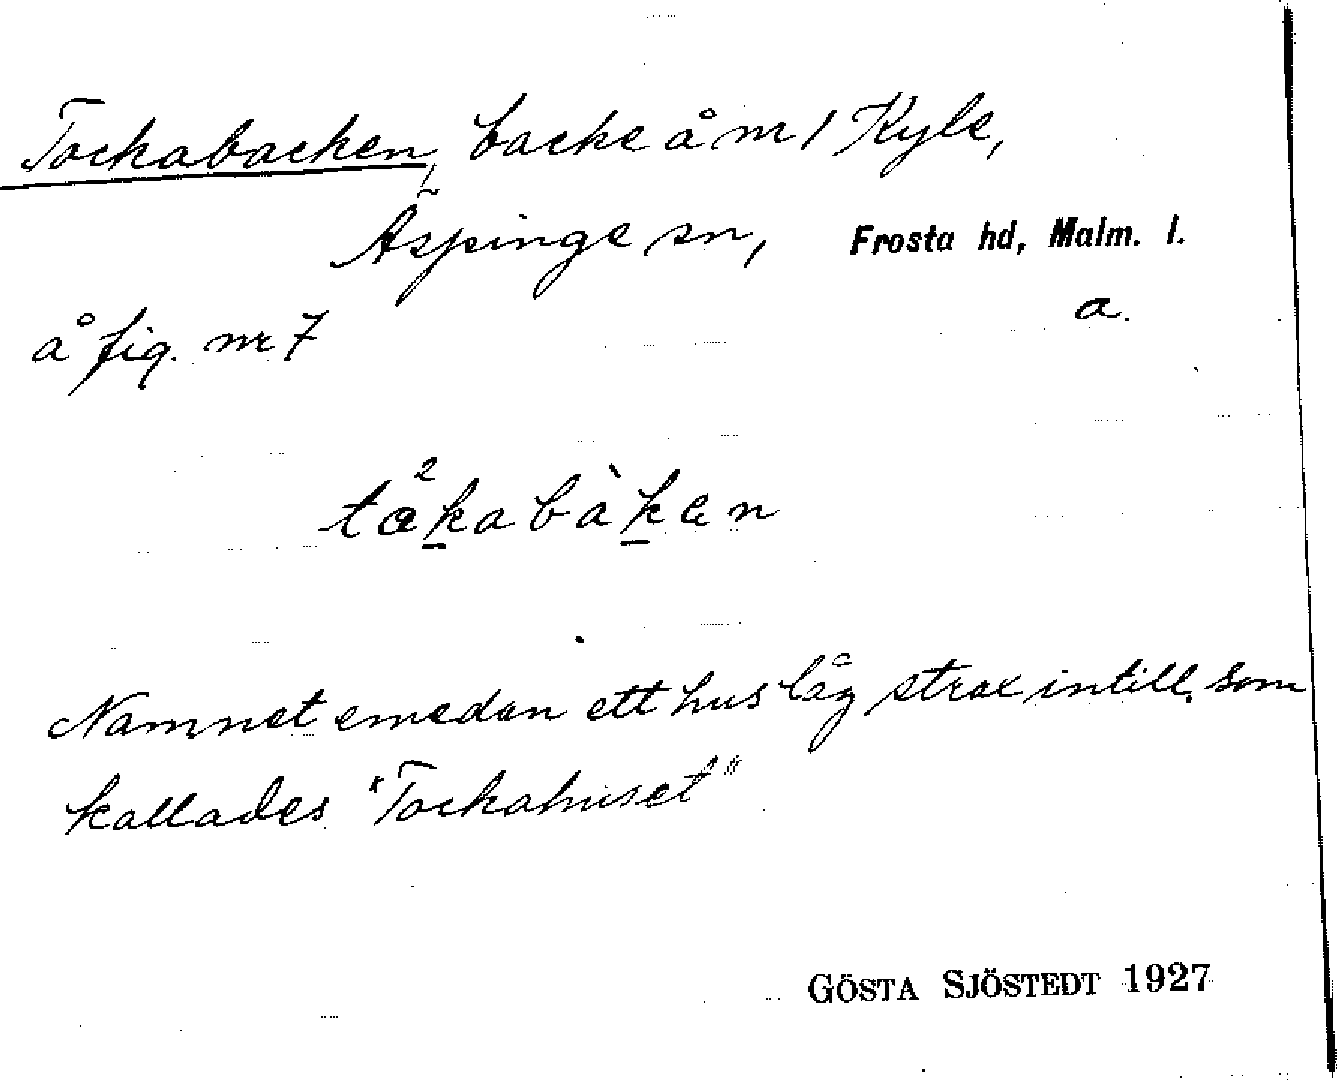 Tockabacken, backe å nr 1 Kyle,
Äspinge sn, Frosta hd, Malm. l.
a.
å fig. nr 7
Namnet emedan ett hus låg strax intill, som
kallades "Tockahuset"
GÖSTA SJÖSTEDT 1927